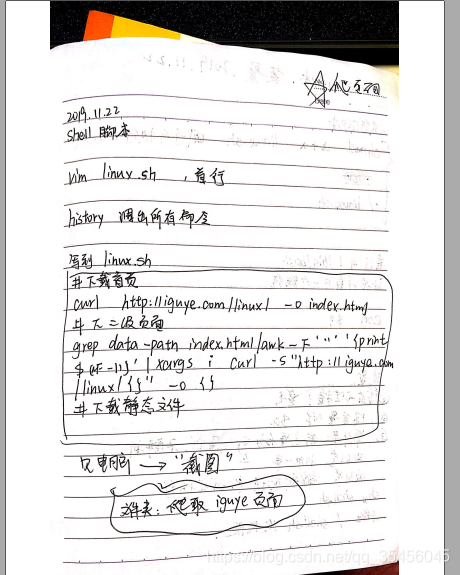 爬页面
2019.11.22
shell 脚本
vim linux.sh , 首行
history 调出所有命令
写到 linux.sh
#下载首页
curl http://iguye.com/linux/ -o index.html
#下二级页面
grep data-path index.html/awk -F '"' '{print
$(NF-1)}' | xargs i curl -s "http://iguye.com
/linux/{}" -o {}
#下载静态文件
见电脑 → "截图"
文件夹: 爬取 iguye 页面
https://blog.csdn.net/qq_35456045